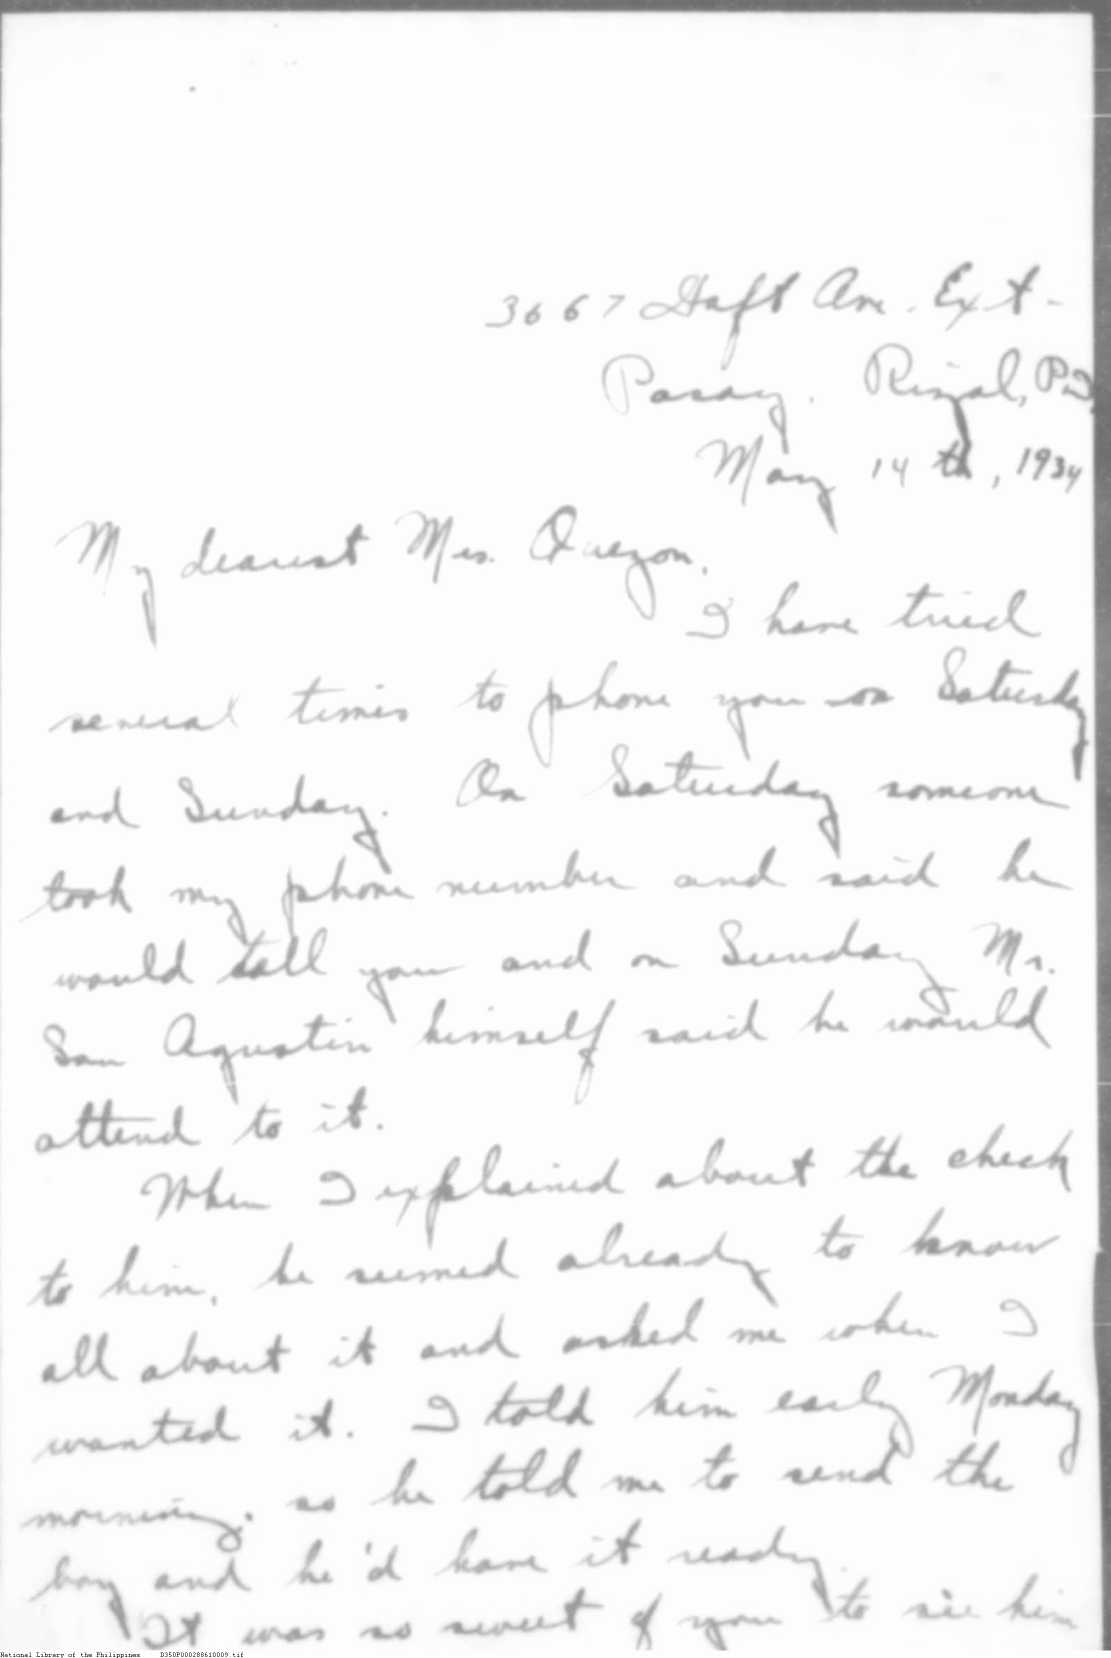 3667 Taft Ave. Ext-
Pasay. Rizal, P.I.
May 14th, 1934
My dearest Mrs. Quezon,
I have tried
several times to phone you on Saturday
and Sunday. On Saturday someone
took my phone number and said he
would tell you and on Sunday Mr.
San Agustin himself said he would
attend to it.
When I explained about the check
to him, he seemed already to know
all about it and asked me when I
wanted it. I told him early Monday
morning. so he told me to send the
boy and he'd have it ready.
It was so sweet of you to see him
National Library of the Philippines D350P000288610009.tif